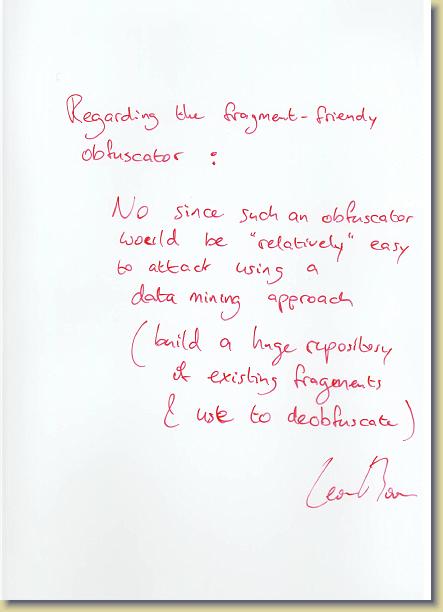 Regarding the fragment-friendly
obfuscator :
No since such an obfuscator
would be "relatively" easy
to attack using a
data mining approach
(build a huge repository
of existing fragements
& use to deobfuscate)